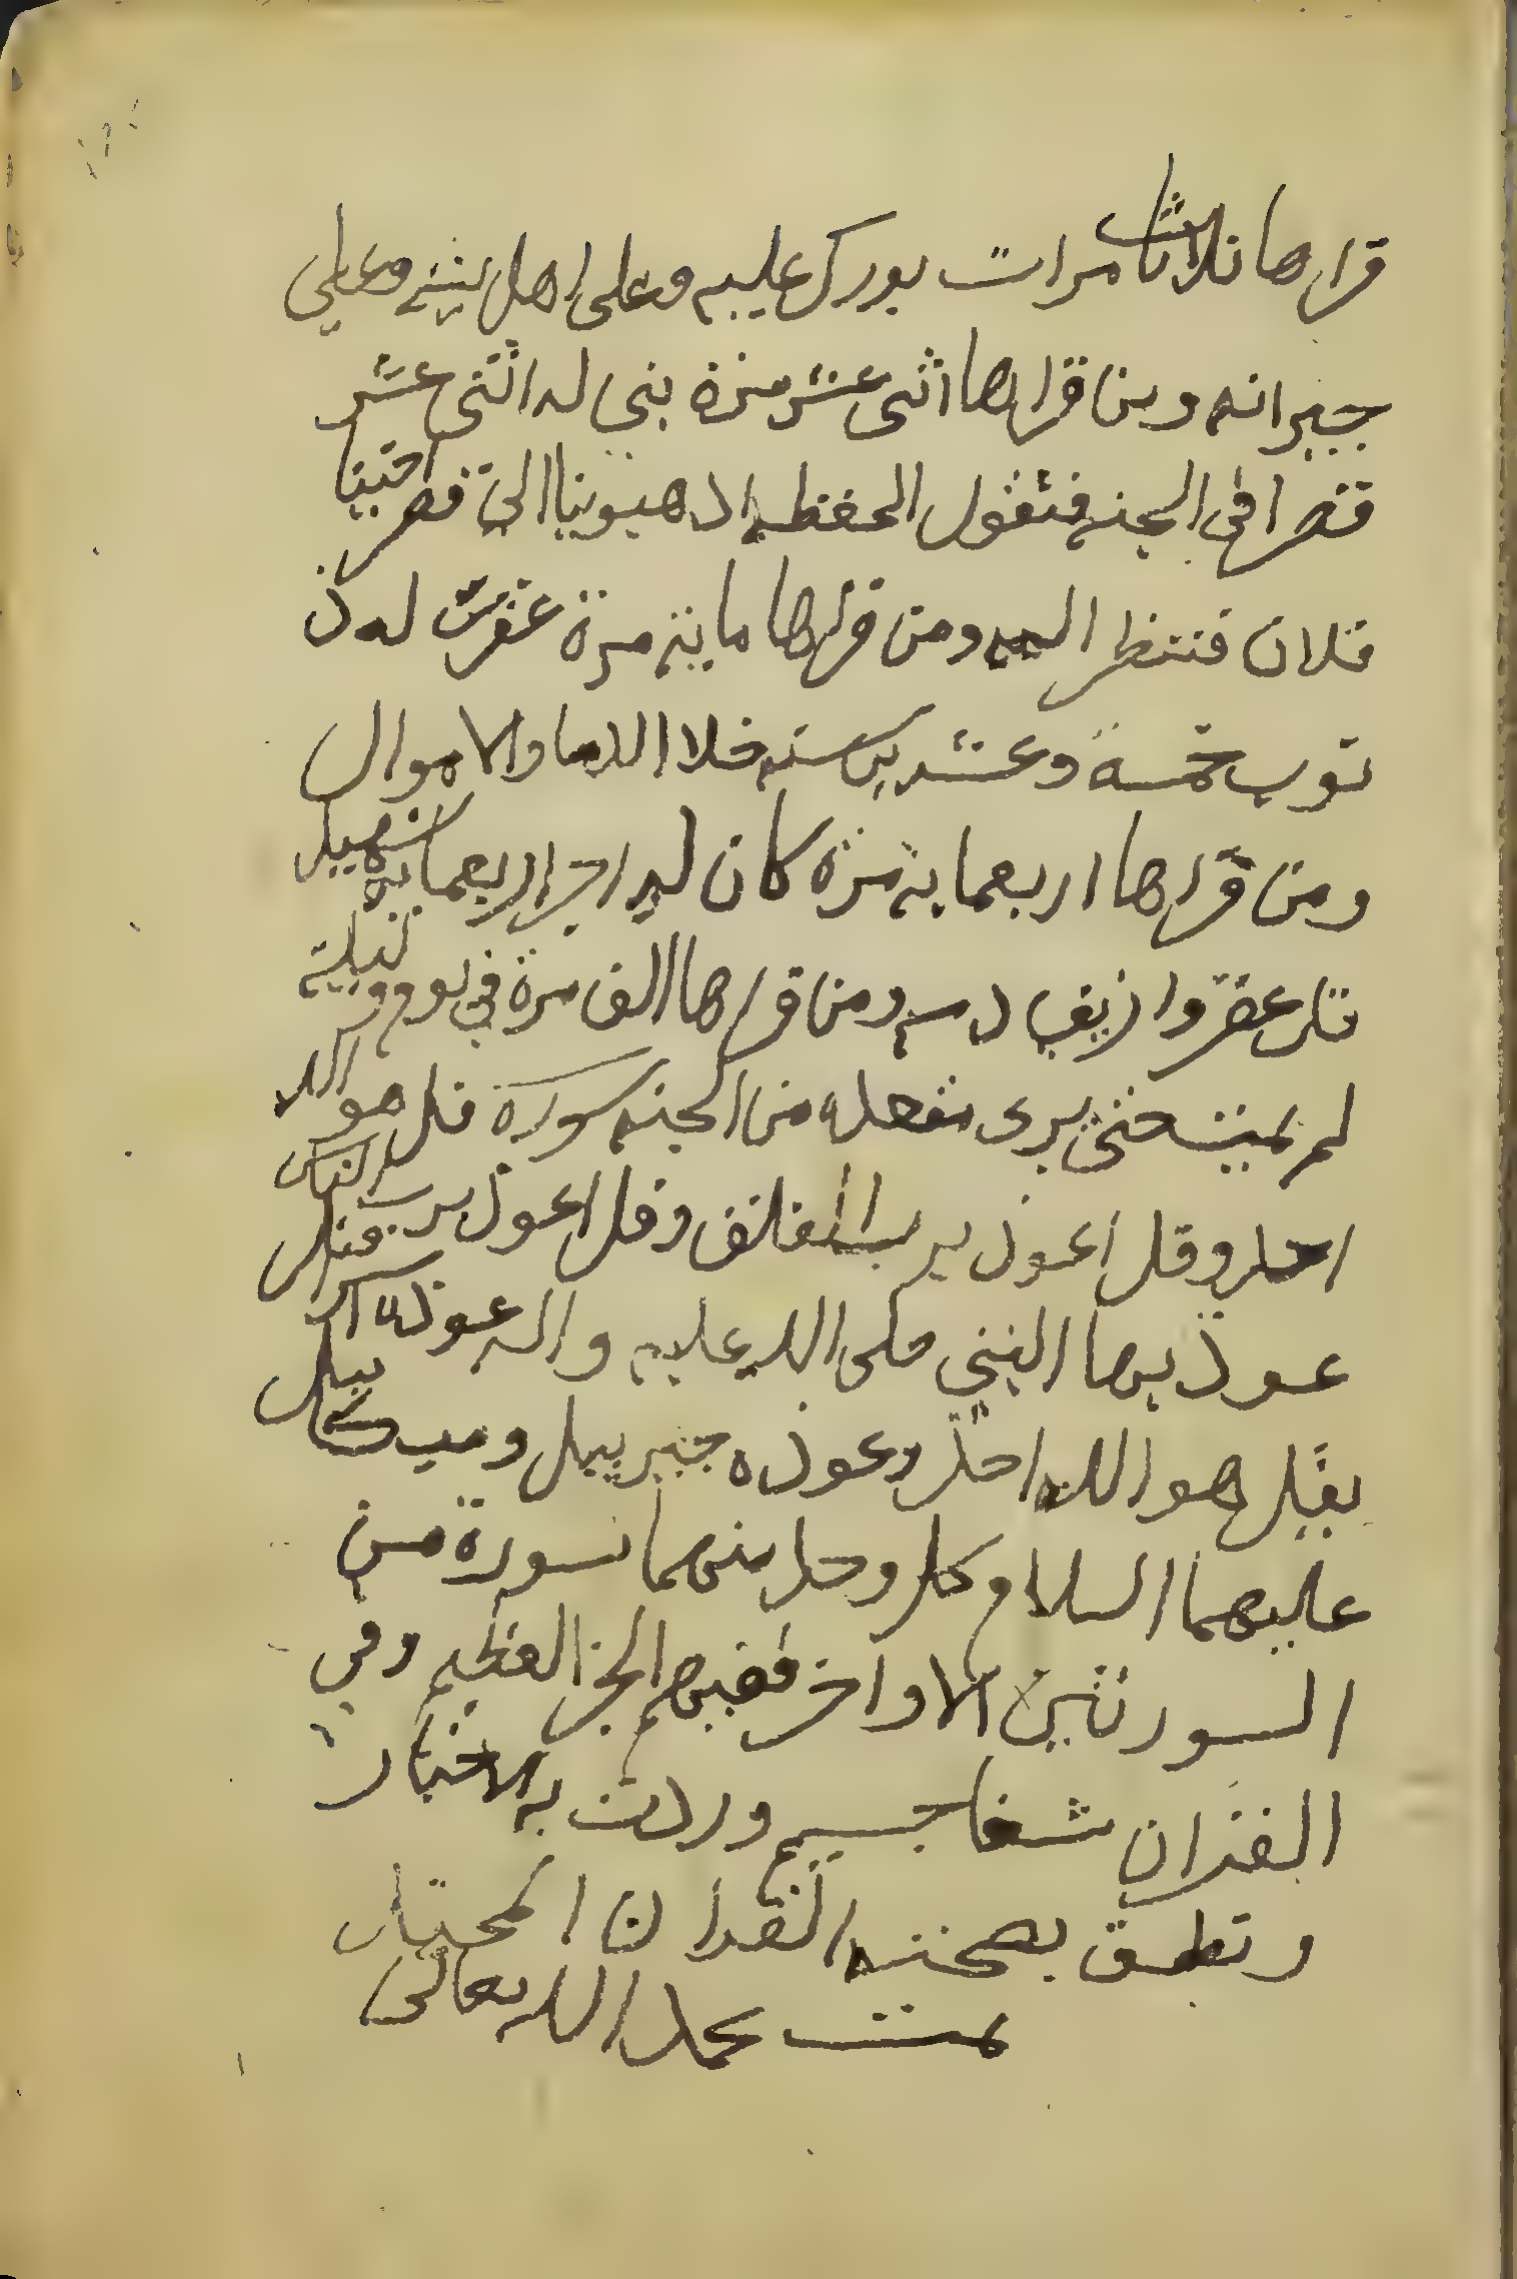 قراها ثلاث مرات بورك عليه وعلى اهل بيته وعلى
جيرانه ومن قراها اثنى عشر مرة بنى له اثنى عشر
قصرا فى الجنه فتقول الحفظه اذهبوبنا الى قصر اخينا
فلان فننظر اليه ومن قراها ماية مرة غفرت له ذ
نوب خمسة وعشرين سنه خلا الدما والاموال
ومن قراها اربعماية مرة كان له اجر اربعماية شهيد
كل عقروا دمه ومن قراها الف مرة في يوم وليلة
لم يمت حتى يرى مقعده من الجنه سورة قل هو الله
احد وقل اعوذ برب الفلق وقل اعوذ برب الناس
عوذ بها النبي صلى الله عليه واله
بقل هو الله احد وعوذه جبرييل وميكاييل
عليهما السلام كل وحد منهما بسورة من
السورتين الاواخر ففيهم العظيم وفي
القران شفا جسيم وردت به الاخبار
ونطق بصحته القران المختار
تمت بحمد الله تعالى